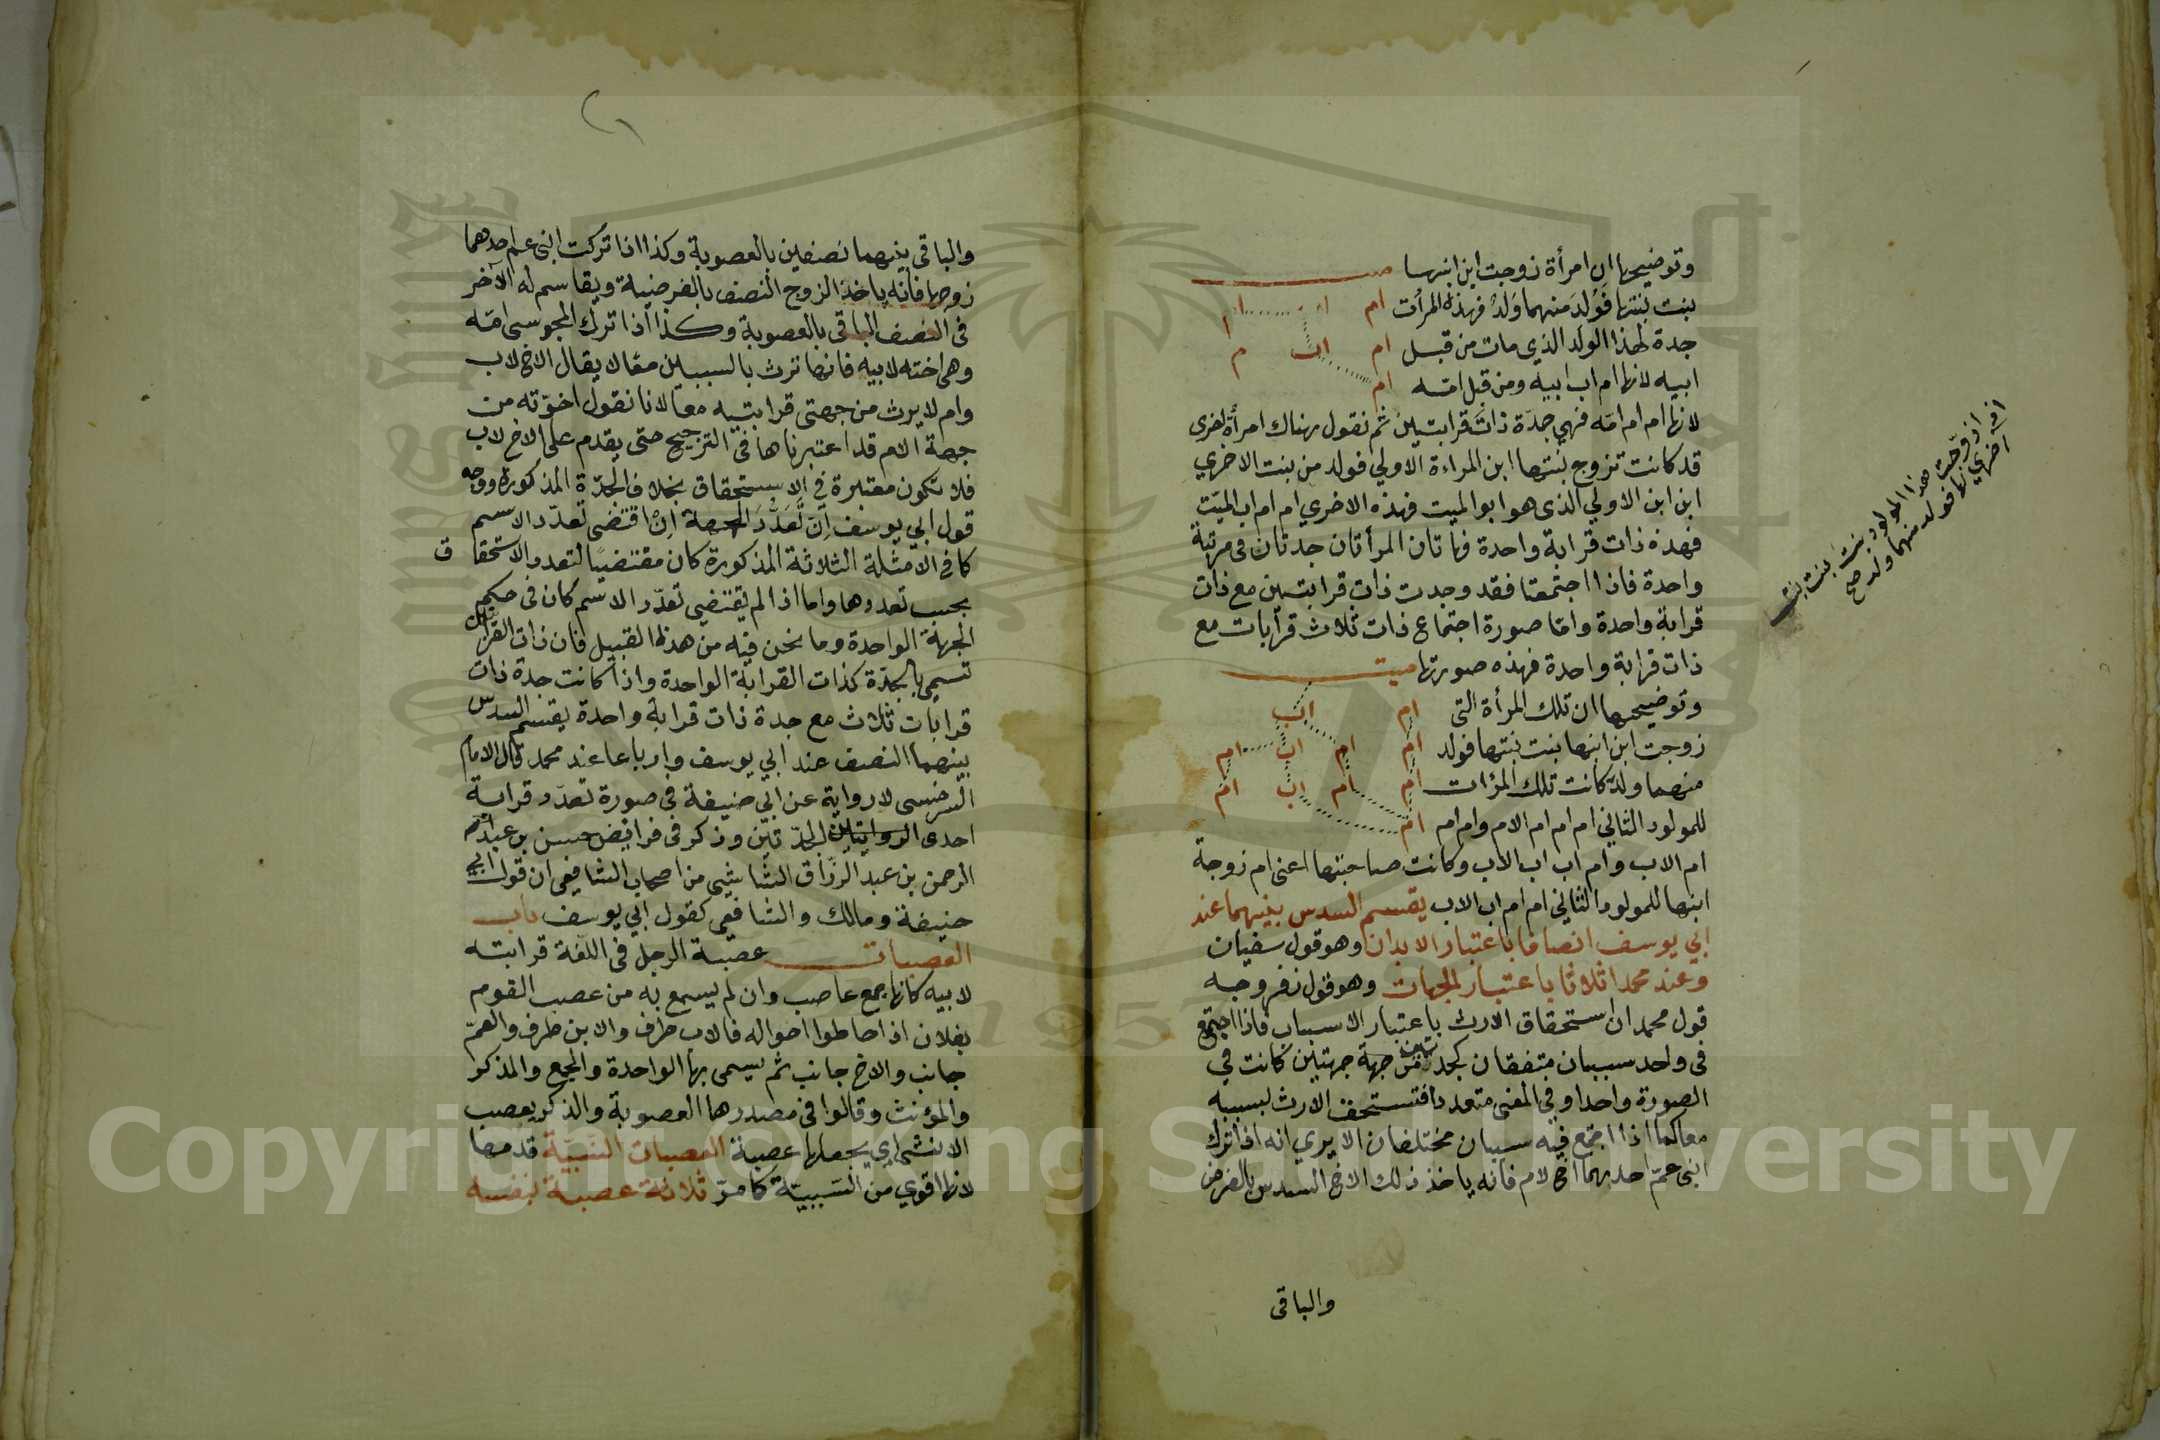 وتوضيحها ان امرأة زوجت ابن ابنها ميت
بنت بنتها فولد منهما ولد فهذه المرأت ام اب ام
جدة لهذا الولد الذي مات من قبل ام اب م
ابيه لانها ام اب ابيه ومن قبل امه ام
لانها ام ام امه فهي جدة ذات قرابتين ثم نقول هناك امرأة اخرى
قد كانت تزوج بنتها ابن المراءة الاولي فولد من بنت الاخري
ابن ابن الاولي الذي هو ابو الميت فهذه الاخري ام ام اب الميت
فهذه ذات قرابة واحدة فهاتان المرأتان جدتان في مرتبة
واحدة فاذا اجتمعتا فقد وجدت ذات قرابتين مع ذات
قرابة واحدة واما صورة اجتماع ذات ثلاث قرابات مع
ذات قرابة واحدة فهذه صورتها ميت
وتوضيحها ان تلك المرأة التي ام اب
زوجت ابن ابنها بنت بنتها فولد ام ام اب ام
منهما ولد كانت تلك المرءات ام ام اب ام
للمولود الثاني ام ام ام الام وام ام ام
ام الاب وام اب اب الاب وكانت صاحبتها اعني ام زوجة
ابنها للمولود الثاني ام ام اب الاب يقسم السدس بينهما عند
ابي يوسف انصافا باعتبار الابدان وهو قول سفيان
وعند محمد اثلاثا باعتبار الجهات وهو قول زفر وجه
قول محمد ان استحقاق الارث باعتبار الاسباب فاذا اجتمع
في واحد سببان متفقان كجدة من جهة جهتين كانت في
الصورة واحدا وفي المعنى متعددا فتستحق الارث لسببه
معا كما اذا اجتمع فيه سببان مختلفان الا يري انه اذا ترك
ابني عم احدهما اخ لام فانه ياخذ ذلك الاخ السدس بالفرض
والباقي
اذا زوجت هذا المولود بنت بنت بنت
اخري لها فولد منهما ولد صح
والباقي بينهما نصفين بالعصوبة وكذا اذا تركت ابني عم احدهما
زوجها فانه ياخذ الزوج النصف بالفرضية ويقاسم له الآخر
في النصف الباقي بالعصوبة وكذا اذا ترك المجوسي امه
وهي اخته لابيه فانها ترث بالسببين معا لا يقال الاخ لاب
وام لا يرث من جهتي قرابتيه معا لانا نقول اخوته من
جهة الام قد اعتبرناها في الترجيح حتى يقدم على الاخ لاب
فلا تكون معتبرة في الاستحقاق بخلاف الجدة المذكورة ووجه
قول ابي يوسف ان تعدد الجهة ان اقتضى تعدد الاسم
كما في الامثلة الثلاثة المذكورة كان مقتضيا لتعدد الاستحقاق
بحسب تعددها واما اذا لم يقتضي تعدد الاسم كان في حكم
الجهة الواحدة وما نحن فيه من هذا القبيل فان ذات القرابتين
تسمي بالجدة كذات القرابة الواحدة واذا كانت جدة ذات
قرابات ثلاث مع جدة ذات قرابة واحدة يقسم السدس
بينهما النصف عند ابي يوسف وارباعا عند محمد قال الامام
السرخسي لا رواية عن ابي حنيفة في صورة تعدد قرابة
احدى الجدتين وذكر في فرائض حسن بن عبد
الرحمن بن عبد الرزاق الشاشي من اصحاب الشافعي ان قول ابي
حنيفة ومالك والشافعي كقول ابي يوسف باب
العصبات عصبة الرجل في اللغة قرابته
لابيه كانها جمع عاصب وان لم يسمع به من عصب القوم
بفلان اذا احاطوا احواله فالاب طرف والابن طرف والعم
جانب والاخ جانب ثم يسمى بها الواحدة والجمع والمذكر
والمؤنث وقالوا في مصدرها العصوبة والذكر يعصب
الانثى اي يجعلها عصبة العصبات النسبية قدمها
لانها اقوي من السببية كما مر ثلاثة عصبة بنفسه